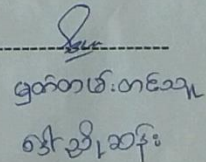 မှတ်တမ်းတင်သူ
ဒေါ်ညိုဆန်း